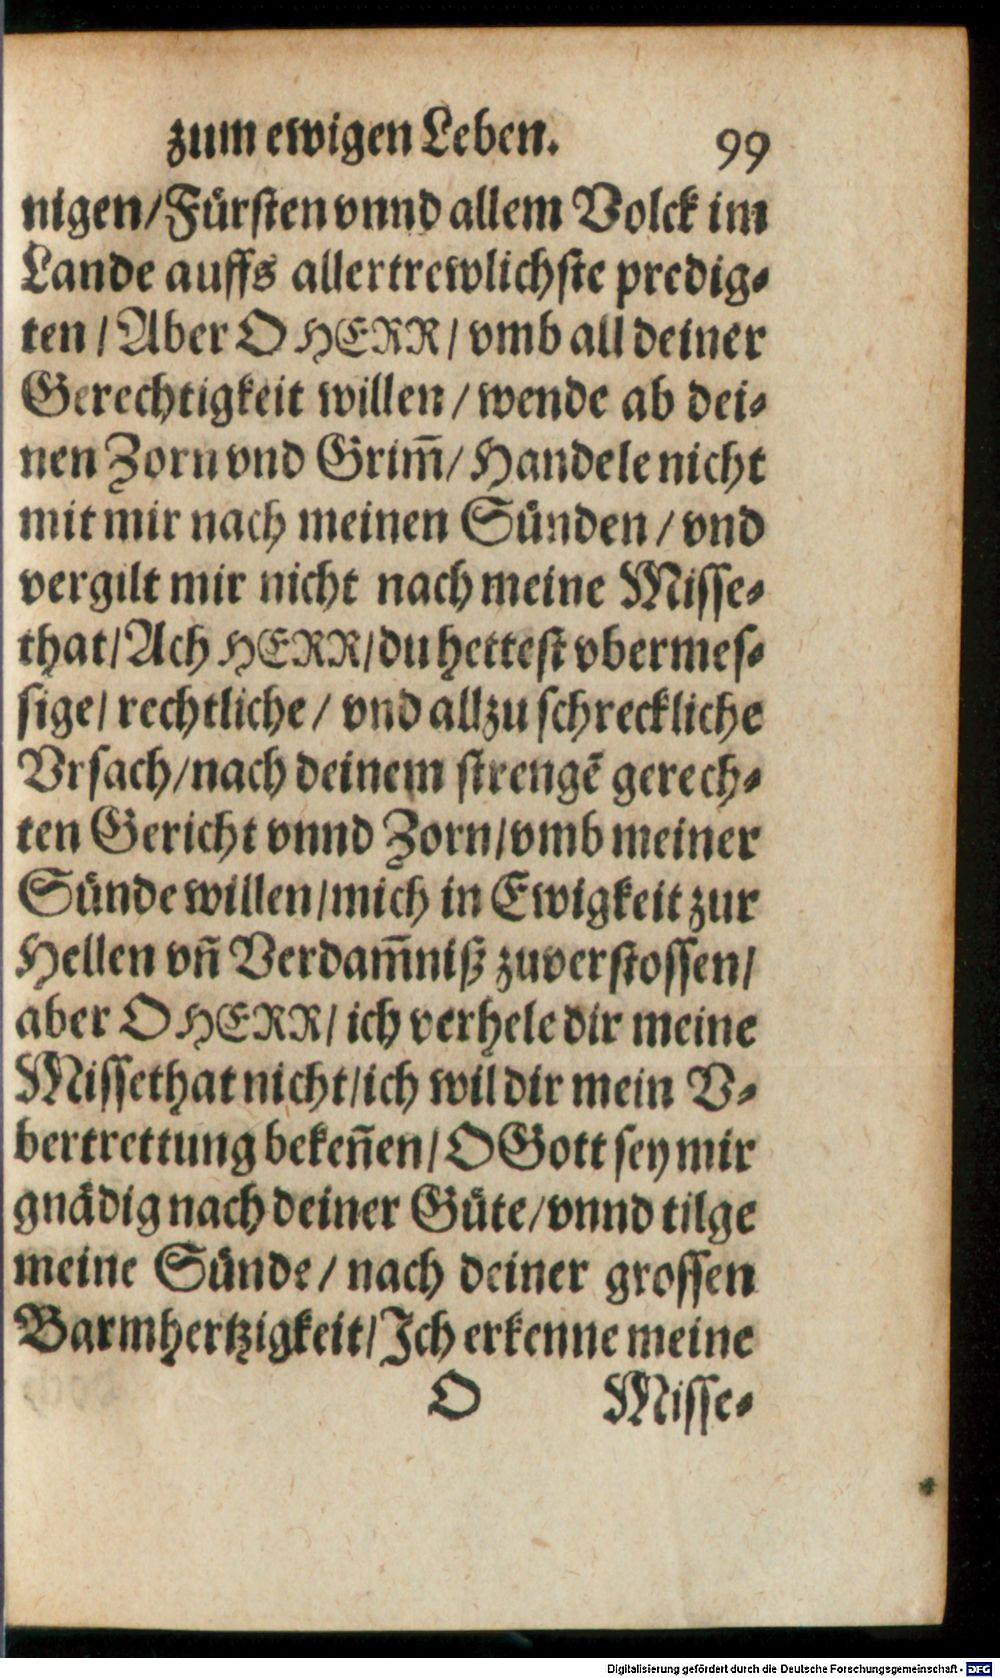 zum ewigen Leben. 99
nigen/Fürsten vnnd allem Volck im
Lande auffs allertrewlichste predig-
ten / Aber O HERR / vmb all deiner
Gerechtigkeit willen / wende ab dei-
nen Zorn vnd Grim̃/ Handele nicht
mit mir nach meinen Sünden / vnd
vergilt mir nicht nach meine Misse-
that/Ach HERR/du hettest vbermes-
sige/ rechtliche / vnd allzu schreckliche
Vrsach/nach deinem strengẽ gerech-
ten Gericht vnnd Zorn/vmb meiner
Sünde willen/mich in Ewigkeit zur
Hellen vñ Verdam̃niß zuverstossen/
aber O HERR/ ich verhele dir meine
Missethat nicht/ich wil dir mein V-
bertrettung bekeñen/O Gott sey mir
gnädig nach deiner Güte/vnnd tilge
meine Sünde / nach deiner grossen
Barmhertzigkeit/Ich erkenne meine
O Misse-
Digitalisierung gefördert durch die Deutsche Forschungsgemeinschaft - DFG